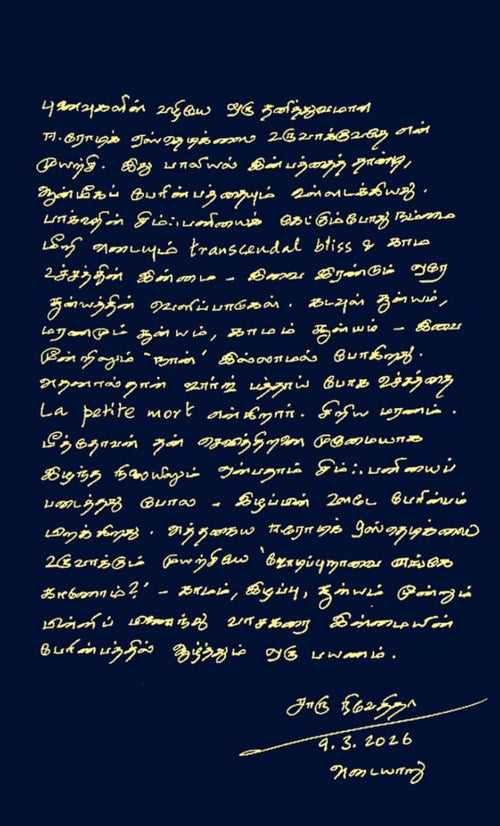 புனைவுகளின் வழியே ஒரு தனித்துவமான
ஈரோடிக் ஏஸ்தடிக்ஸை உருவாக்குவதே என்
முயற்சி. இது பாலியல் இன்பத்தைத் தாண்டி,
ஆன்மீகப் பேரின்பத்தையும் உள்ளடக்கியது.
பாக்ஹின் சிம்ஃபனியைக் கேட்கும்போது நம்மை
மீறி அடையும் transcendal bliss & காம
உச்சத்தின் இன்மை - இவை இரண்டும் ஒரே
சூன்யத்தின் வெளிப்பாடுகள். கடவுள் சூன்யம்,
மரணமும் சூன்யம், காமம் சூன்யம் - இவை
மூன்றிலும் "நான்" இல்லாமல் போகிறது.
அதனால்தான் ஜார்ஜ் பத்தாய் போக உச்சத்தை
La petite mort என்கிறார். சிறிய மரணம்.
பீத்தோவன் தன் செவித்திறனை முழுமையாக
இழந்த நிலையிலும் ஒன்பதாம் சிம்ஃபனியைப்
படைத்தது போல - இழப்பின் ஊடே பேரின்பம்
பிறக்கிறது. அத்தகைய ஈரோடிக் ஏஸ்தெடிக்ஸை
உருவாக்கும் முயற்சியே 'ஜோடிப்புறாவை எங்கே
காணோம்?' - காமம், இழப்பு, சூன்யம் மூன்றும்
பின்னிப் பிணைந்து வாசகரை இன்மையின்
பேரின்பத்தில் ஆழ்த்தும் ஒரு பயணம்.
சாரு நிவேதிதா
9.3.2026
அடையாறு